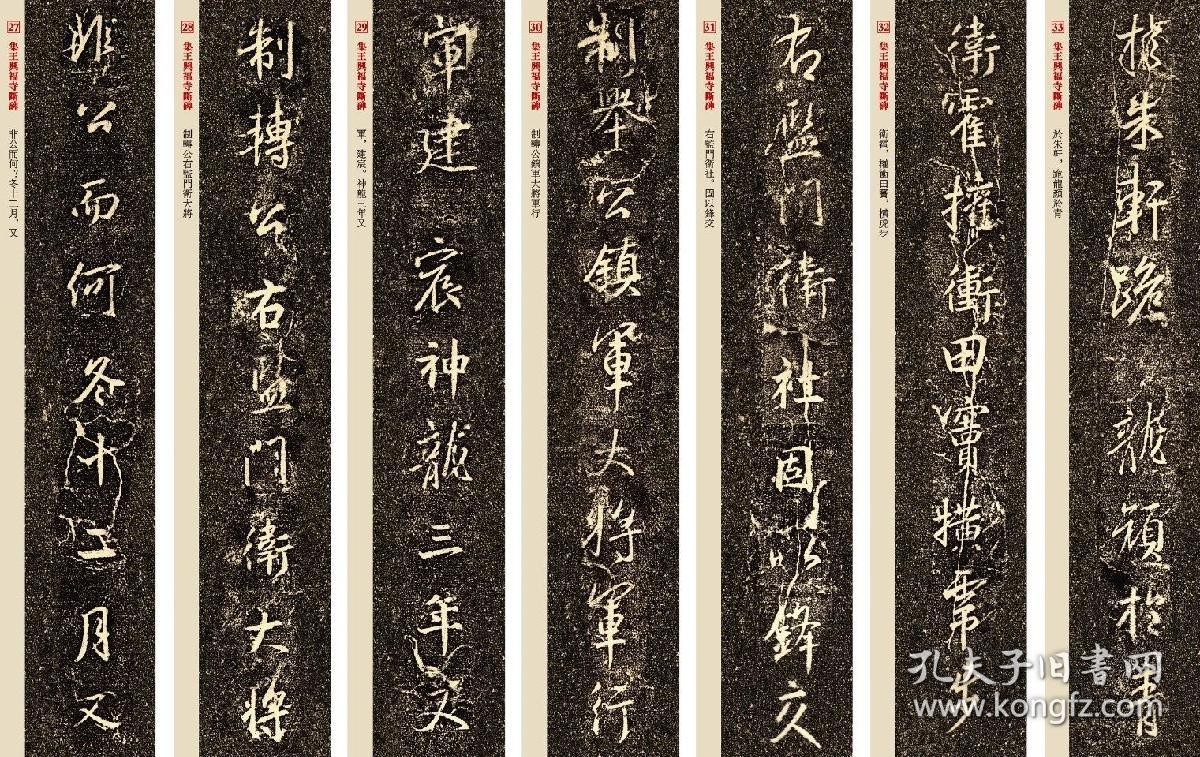 27 集王興福寺斷碑
非公而何？冬十二月，又
非公而何冬十二月又
28 集王興福寺斷碑
制轉公右監門衛大將
制轉公右監門衛大將
29 集王興福寺斷碑
軍，建宸。神龍三年又
軍建宸神龍三年又
30 集王興福寺斷碑
制舉公鎮軍大將軍行
制舉公鎮軍大將軍行
31 集王興福寺斷碑
右監門衛社，固以鋒交
右監門衛社固以鋒交
32 集王興福寺斷碑
衛霍，擁衝田竇，橫虎步
衛霍擁衝田竇橫虎步
33 集王興福寺斷碑
於朱軒，跪龍頷於青
於朱軒跪龍頷於青
孔夫子旧书网
www.kongfz.com